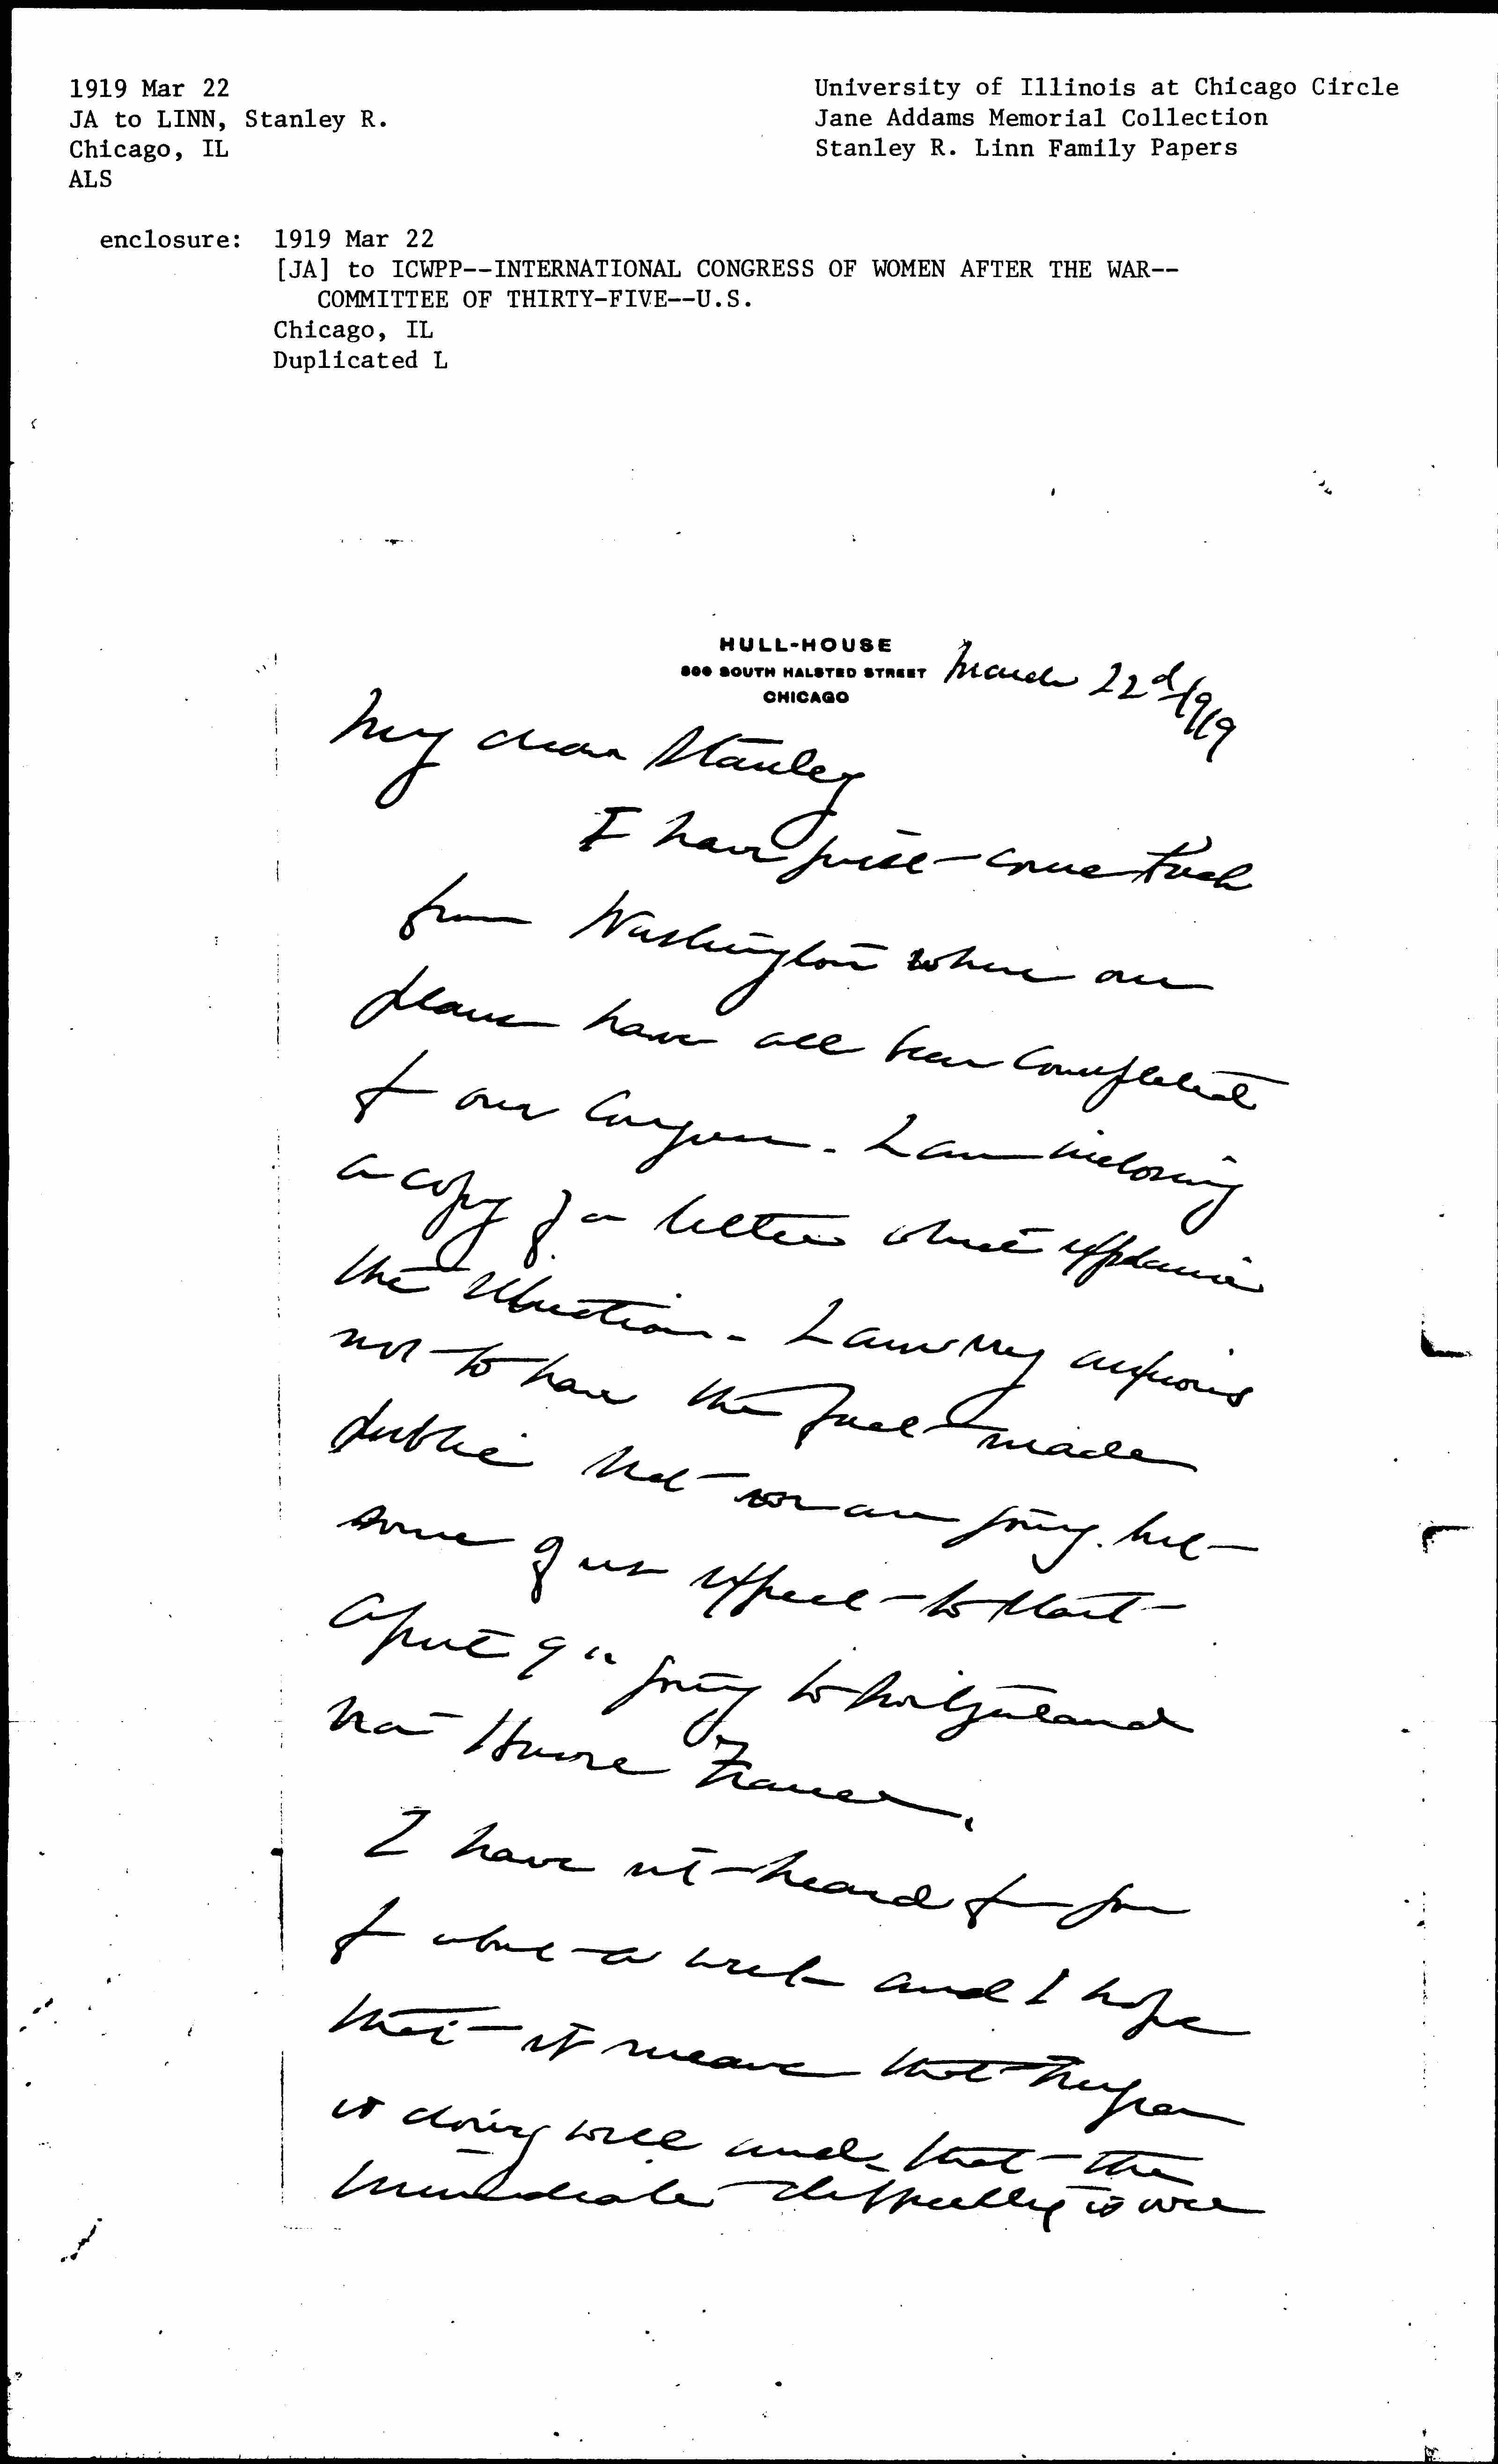 1919 Mar 22
JA to LINN, Stanley R.
Chicago, IL
ALS
University of Illinois at Chicago Circle
Jane Addams Memorial Collection
Stanley R. Linn Family Papers
enclosure: 1919 Mar 22
[JA] to ICWPP--INTERNATIONAL CONGRESS OF WOMEN AFTER THE WAR--
COMMITTEE OF THIRTY-FIVE--U.S.
Chicago, IL
Duplicated L
HULL-HOUSE
800 SOUTH HALSTED STREET
CHICAGO
March 22d/1919
My dear Stanley
I have just come back
from Washington where our
plans have all been completed
for our Congress. I am inclosing
a copy of a letter which explains
the situation. I am very anxious
not to have the fact made
public that we are going. but
some of us expect to start
April 9" going to
via France.
I have not heard from you
for about a week and I hope
that it means that Myra
is doing well and that the
immediate difficulty is over